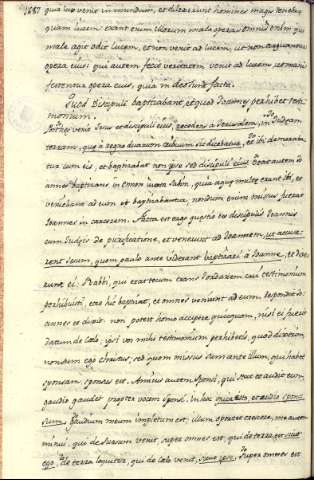 1887 quia lux venit in mundum, et dilexerunt homines magis tenebras
quam lucem: erant enim illorum mala opera: omnis enim qui
male agit odit lucem, et non venit ad lucem, ut non arguantur
opera eius: qui autem facit veritatem venit ad lucem, ut mani
festentur opera eius, quia in deo sunt facta.
Quod Discipuli baptizabant, et quod Joannes perhibet testi
monium.
Post hęc venit Jesus et discipuli eius, recedens a Jerusalem, in Iudęam
terram, quę a regno duarum tribuum sic dicebatur, et ibi demoraba
tur cum eis, et baptizabat non per se sed discipuli eius. Erat autem Jo
annes baptizans in Ennon iuxta Salim, quia aquę multę erant ibi, et
veniebant ad eum et baptizabantur, nondum enim missus fuerat
Joannes in carcerem. Facta est ergo quęstio ex discipulis Joannis
cum Judęis de purificatione, et venerunt ad Joannem, ut accusa
rent Jesum, quem paulo ante viderant baptizari à Joanne, et dixe
runt ei. Rabbi, qui erat tecum trans Jordanem cui testimonium
perhibuisti, ecce hic baptizat, et omnes veniunt ad eum. Respondit Jo
annes et dixit. non potest homo accipere quicquam, nisi ei fuerit
datum de cœlo, ipsi vos mihi testimonium perhibetis, quod dixerim,
non sum ego christus, sed quia missus sum ante illum, qui habet
sponsam, sponsus est. Amicus autem sponsi, qui stat et audit eum
gaudio gaudet propter vocem sponsi. In hoc
sum. Gaudium meum impletum est, illum oportet crescere, me autem
minui. qui de sursum venit, supra omnes est, qui de terra est
ego. de terra loquitur, qui de cœlo venit, supra omnes est